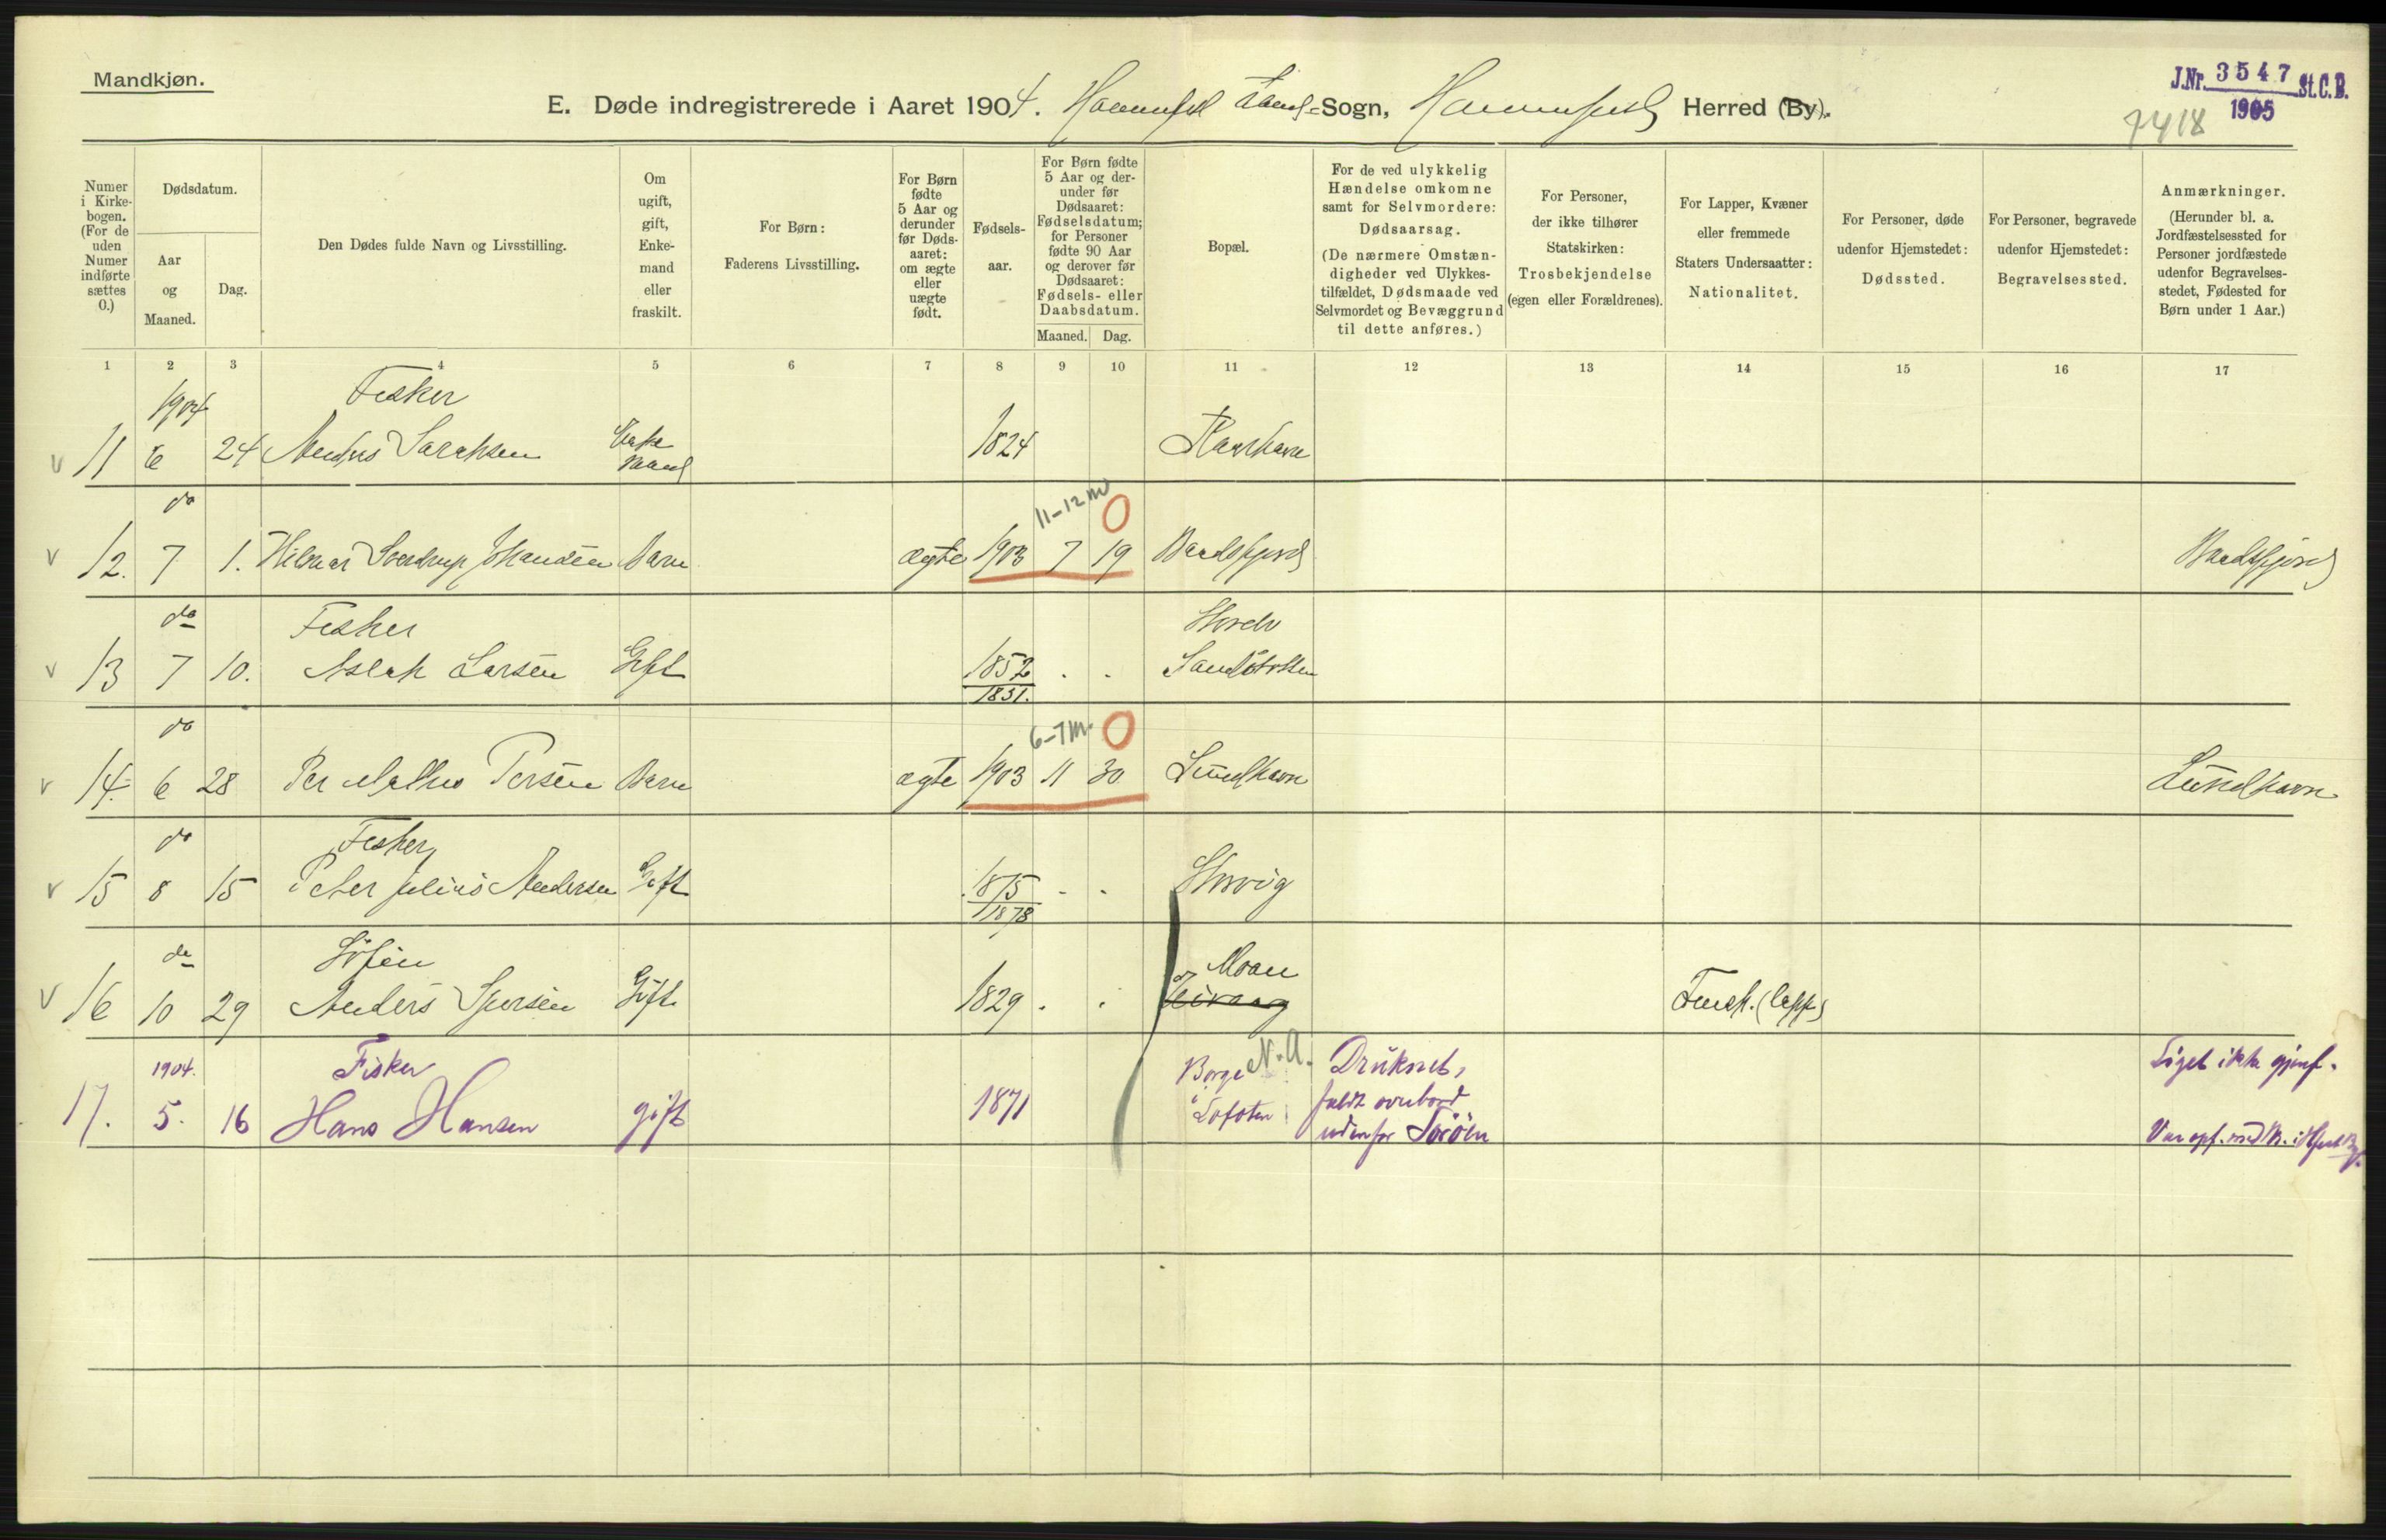 Mandkjøn.
E. Døde indregistrerede i Aaret 1904. Hammerfest Land-Sogn, Hammerfest Herred (By).
J.Nr. 3547 St.C.B.
1905
7418
Numer i Kirkebogen. (For de uden Numer indførte sættes 0.)
Dødsdatum.
Aar og Maaned.
Dag.
Den Dødes fulde Navn og Livsstilling.
Om ugift, gift, Enkemand eller fraskilt.
For Børn: Faderens Livsstilling.
For Børn fødte 5 Aar og derunder før Dødsaaret: om ægte eller uægte født.
Fødselsaar.
For Børn fødte 5 Aar og derunder før Dødsaaret: Fødselsdatum; for Personer fødte 90 Aar og derover før Dødsaaret: Fødsels- eller Daabsdatum.
Maaned. Dag.
Bopæl.
For de ved ulykkelig Hændelse omkomne samt for Selvmordere: Dødsaarsag. (De nærmere Omstændigheder ved Ulykkestilfældet, Dødsmaade ved Selvmordet og Bevæggrund til dette anføres.)
For Personer, der ikke tilhører Statskirken: Trosbekjendelse (egen eller Forældrenes).
For Lapper, Kvæner eller fremmede Staters Undersaatter: Nationalitet.
For Personer, døde udenfor Hjemstedet: Dødssted.
For Personer, begravede udenfor Hjemstedet: Begravelsessted.
Anmærkninger. (Herunder bl. a. Jordfæstelsessted for Personer jordfæstede udenfor Begravelsesstedet, Fødested for Børn under 1 Aar.)
1 2 3 4 5 6 7 8 9 10 11 12 13 14 15 16 17
1904 Fisker
v 11 6 24 Sarahsen Enkemand 1824
do 11-12 m 0
v 12. 7 1. Hilmar Sverdrup Johansen Barn ægte 1903 7 19
do Fisker
v 13 7 10. Aslak Larsen Gift 1852 . .
1831.
do 6-7 m. 0
v 14. 6 28 Per Persen Barn ægte 1903 11 30 Lundhavn Lundhavn
do Fisker
v 15 8 15 Peter Julius Andersen Gift 1875 - - Storvig
1878
do Moan
v 16 10 29 Anders Gift 1829 . . Finsk. (lapp)
1904. Fisker Borge N.A. Druknet, Liget ikke gjenf.
17. 5. 16 Hans Hansen gift 1871 i Lofoten faldt overbord
udenfor Sørøen